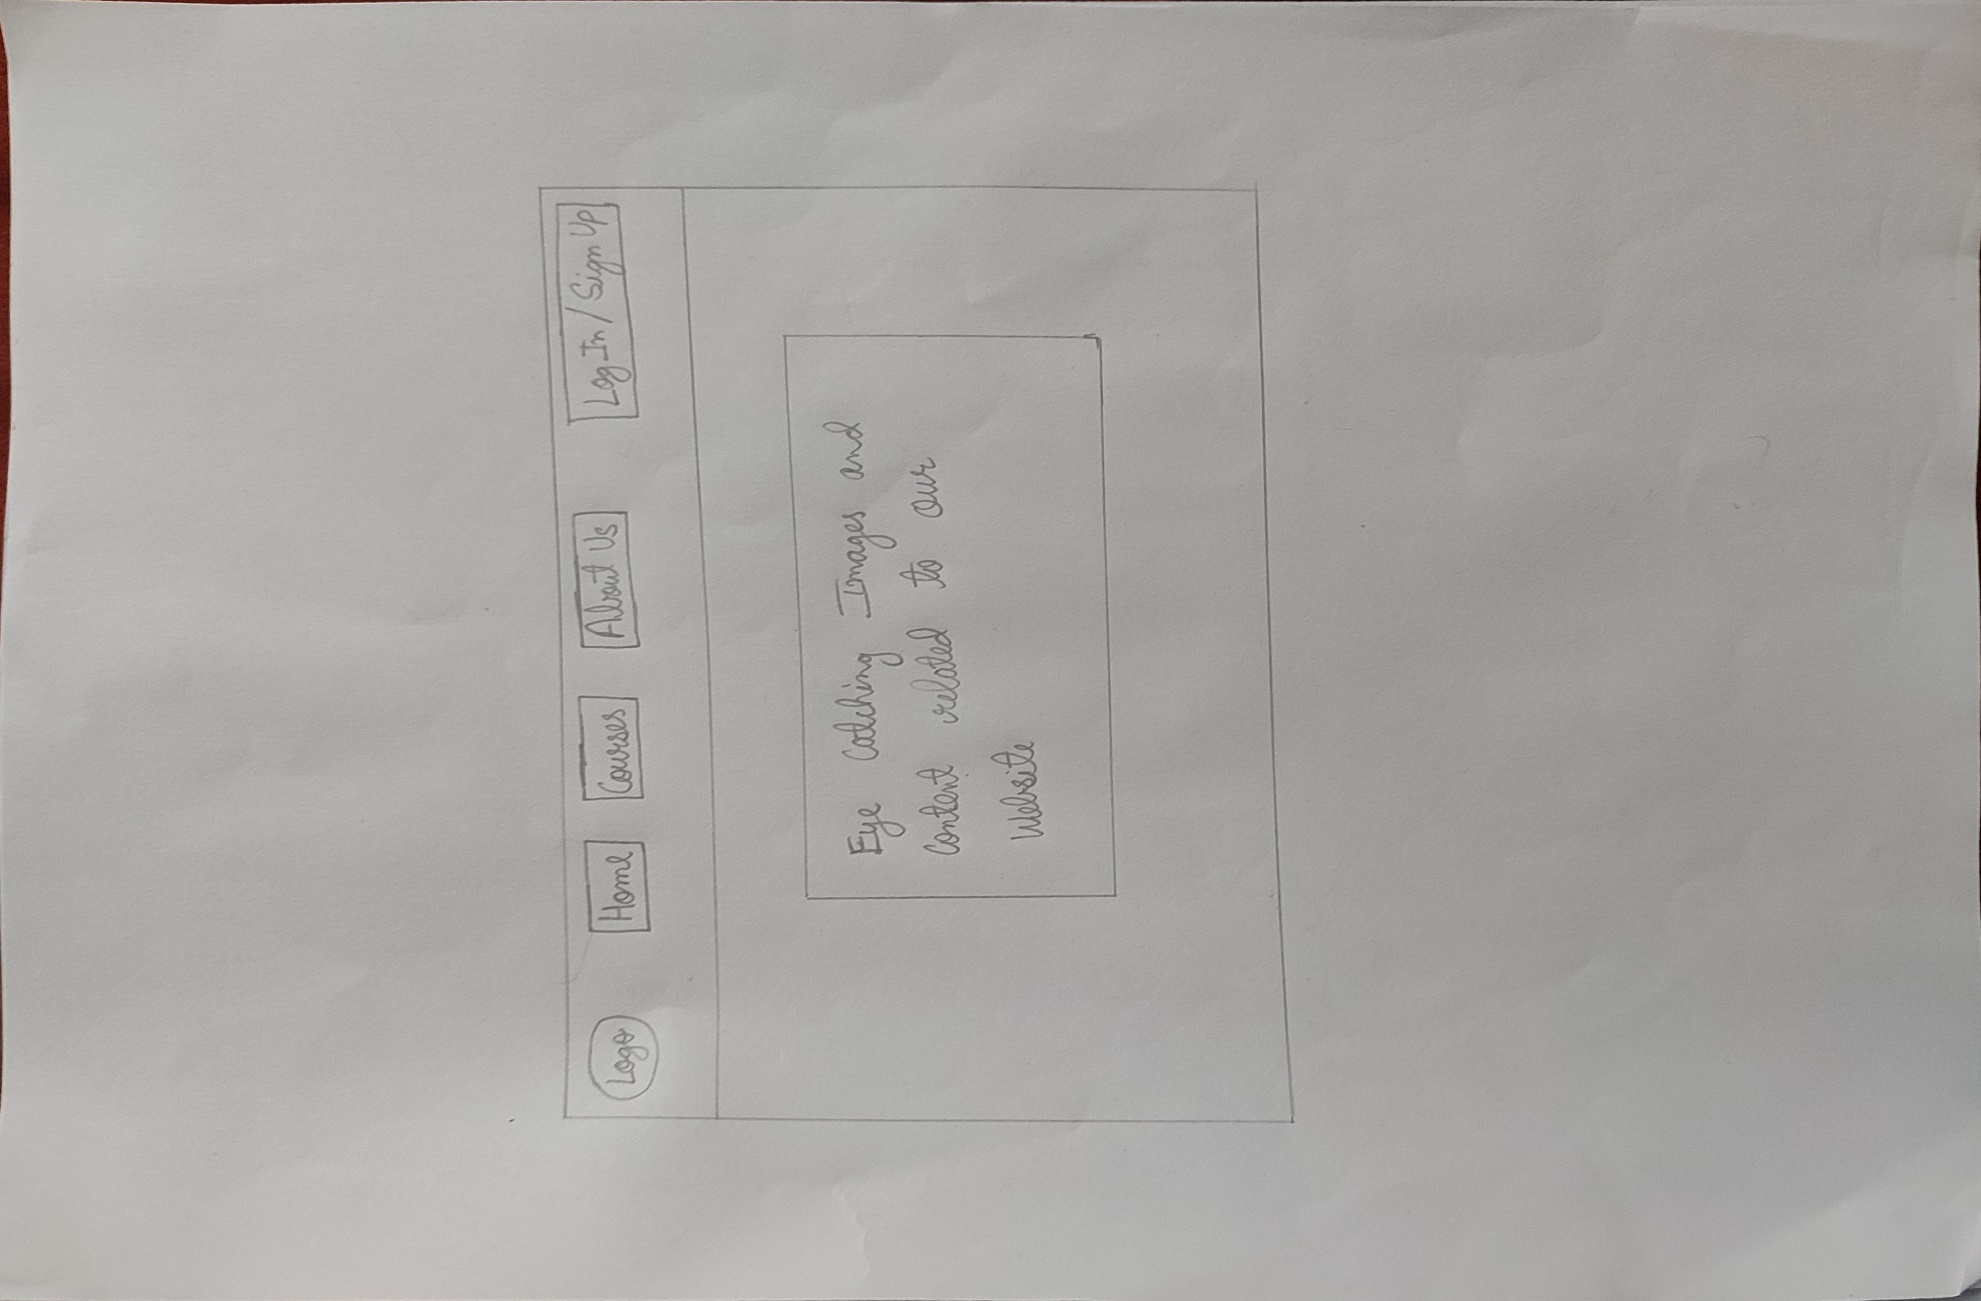 Logo
Home
Courses
About Us
Log In / Sign Up
Eye Catching Images and
Content related to our
Website